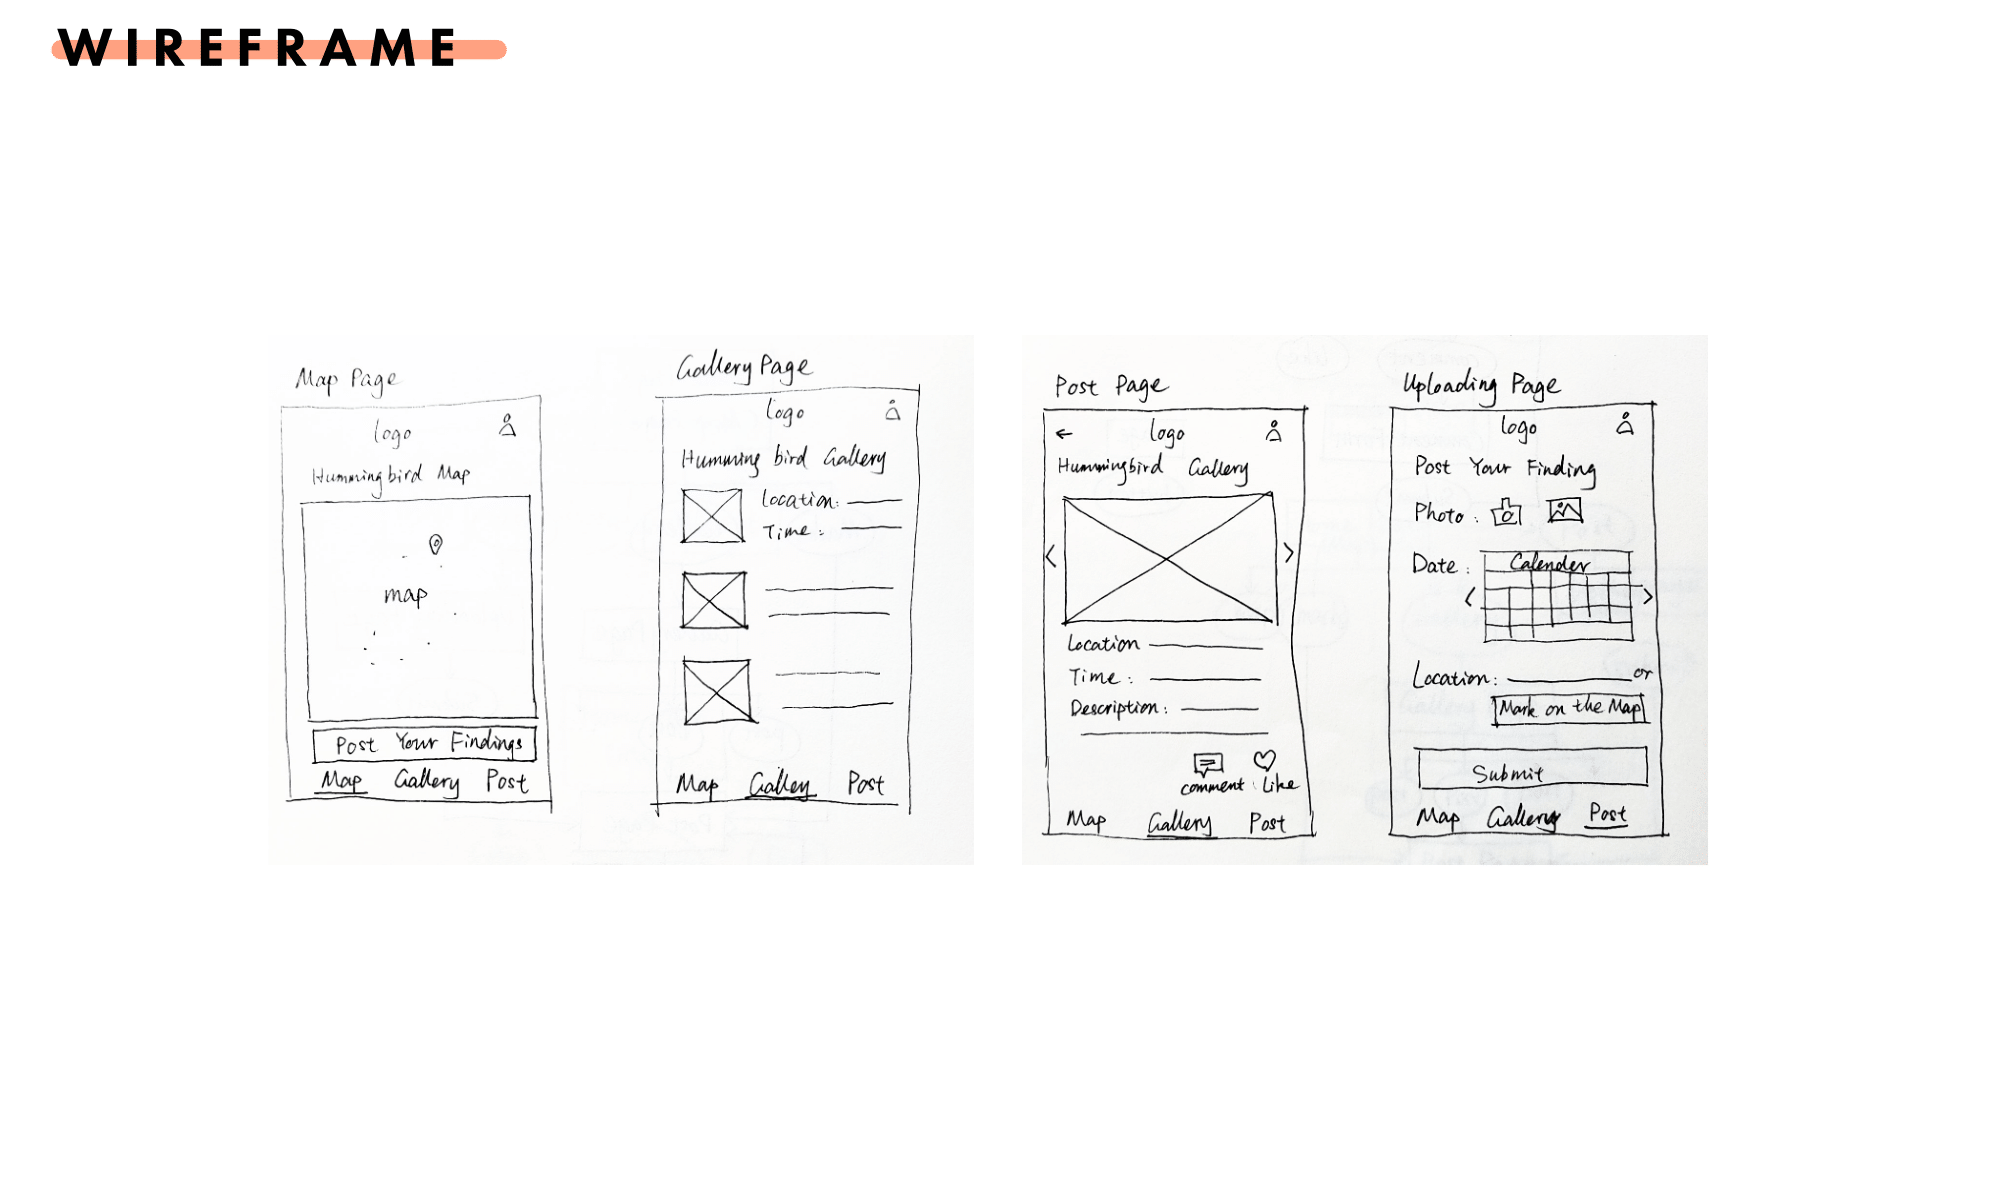 WIREFRAME
Map Page
logo
Hummingbird Map
map
Post Your Findings
Map Gallery Post
Gallery Page
logo
Humming bird Gallery
Location:
Time:
Map Galley Post
Post Page
logo
Hummingbird Gallery
Location
Time:
Description:
comment Like
Map Gallery Post
Uploading Page
logo
Post Your Finding
Photo:
Date: Calender
Location: or
Mark on the Map
Submit
Map Gallery Post